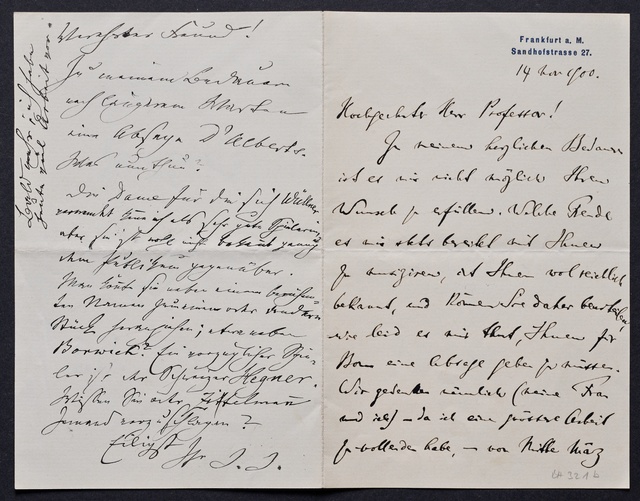 Verehrter Freund!
Zu meinem Bedauern
nach längerem Warten
eine Absage D'Alberts.
Was nun thun?
Die Dame für die sich Wüllner
verwendet kenne ich als sehr gute Spielerin
aber sie ist wohl nicht bekannt genug
dem Publikum gegenüber.
Man sollte zu neben einem berühm-
ten Namen
Stück heranziehen; etwa neben
Borwick? Ein vorzüglicher Spie-
ler ist der Schweizer Hegner.
Wissen Sie oder
Jemand vorzuschlagen?
Eiligst
Ihr J. J.
Bald mehr, ich habe
heute viel Arbeit vor.
Frankfurt a. M.
Sandhofstrasse 27.
14 Nov 900.
Hochgeehrter Herr Professor!
Zu meinem herzlichen Bedauern
ist es mir nicht möglich Ihren
Wunsch zu erfüllen. Welche Freude
es mir stets bereitet mit Ihnen
zu musiziren, ist Ihnen wol reichlich
bekannt, und können Sie daher beurteilen,
wie leid es mir thut, Ihnen für
Bonn eine Absage geben zu müssen.
Wir gedenken nämlich (meine Frau
und ich) – da ich eine grössere Arbeit
zu vollenden habe, – von Mitte März